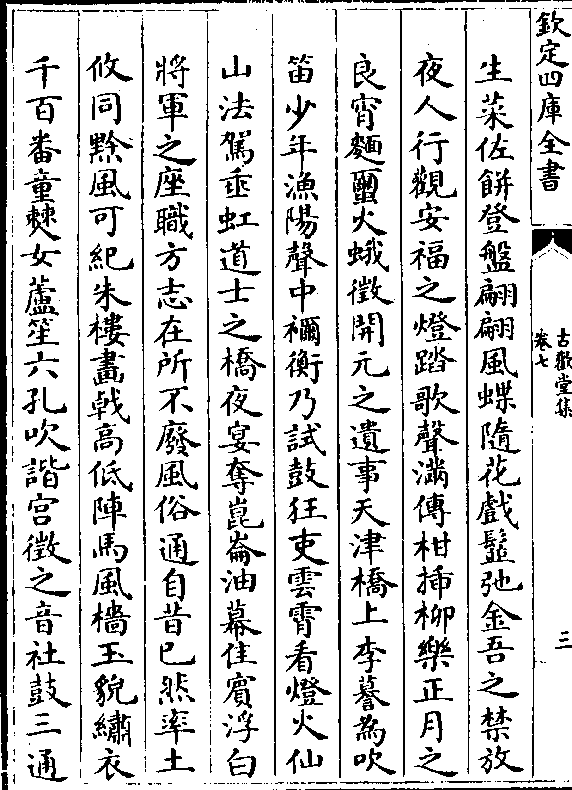 欽定四庫全書
古歡堂集
卷七
三
生菜佐餅登盤翩翩風蝶隨花戲鬚弛金吾之禁放
夜人行觀安福之燈踏歌聲滿傳柑揷柳樂正月之
良宵麵䘉火蛾徴開元之遺事天津橋上李謩為吹
笛少年漁陽聲中禰衡乃試鼓狂吏雲霄看燈火仙
山法駕垂虹道士之橋夜宴奪崑崙油幕佳賓浮白
將軍之座職方志在所不廢風俗通自昔已然率土
攸同黔風可紀朱樓畵㦸高低陣馬風檣玉貌繡衣
千百畨童僰女蘆笙六孔吹諧宫徴之音社鼓三通